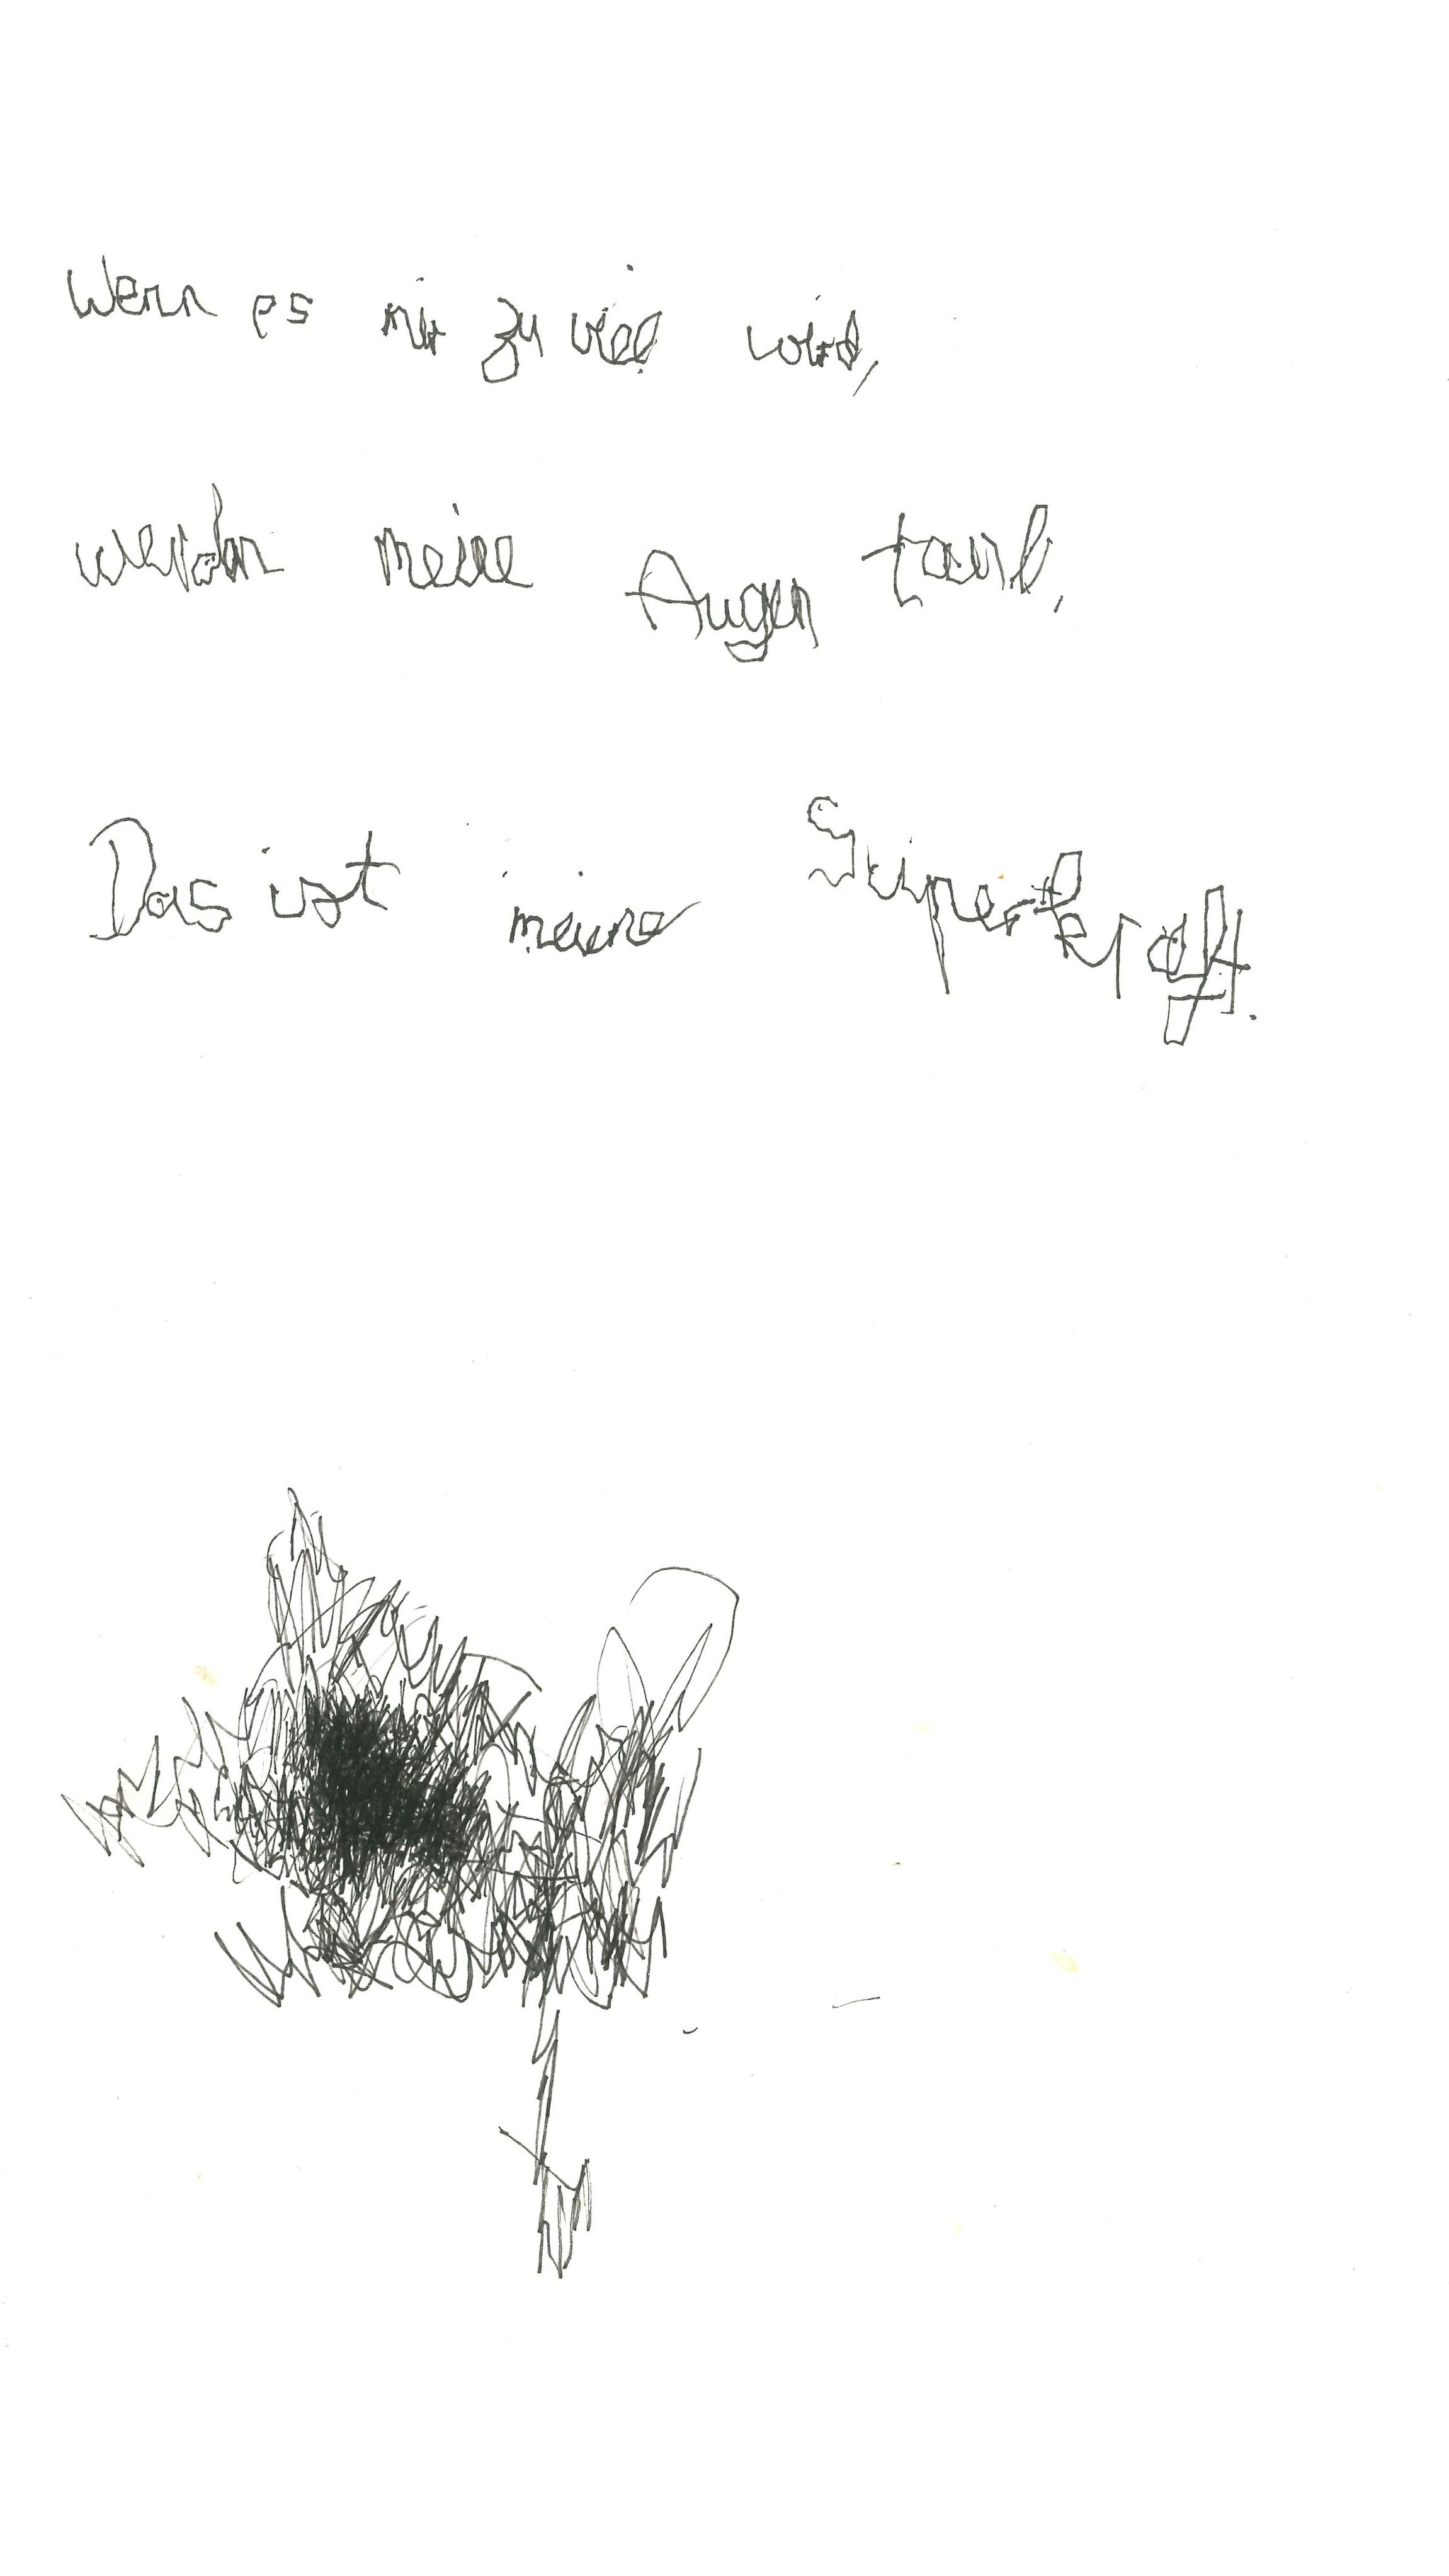 Wenn es mir zu viel wird,
werden meine Augen taub.
Das ist meine Superkraft.